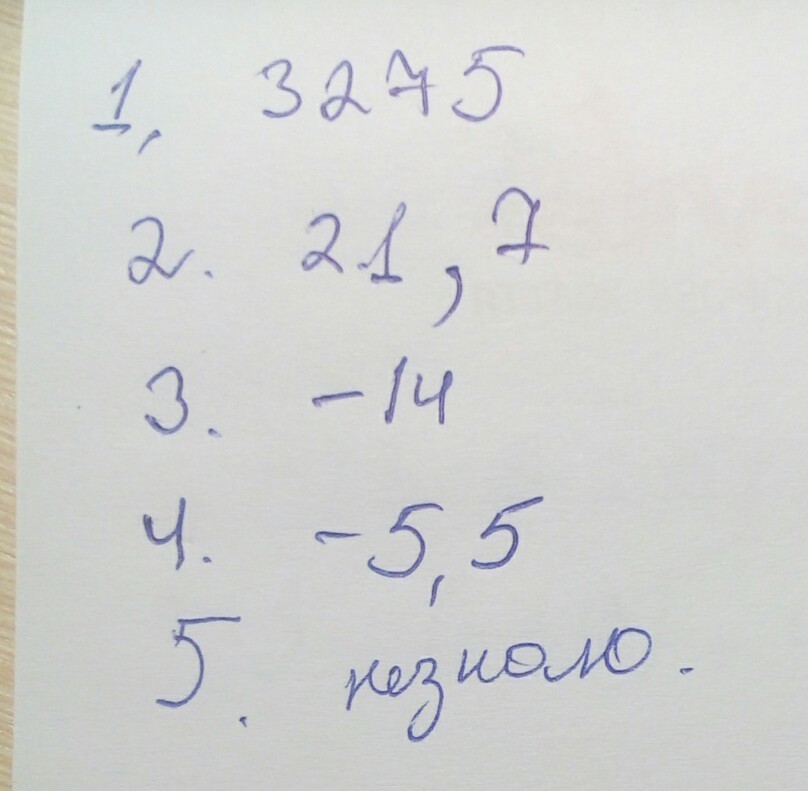 1, 3275
2. 21,7
3. -14
4. -5,5
5. незнаю.